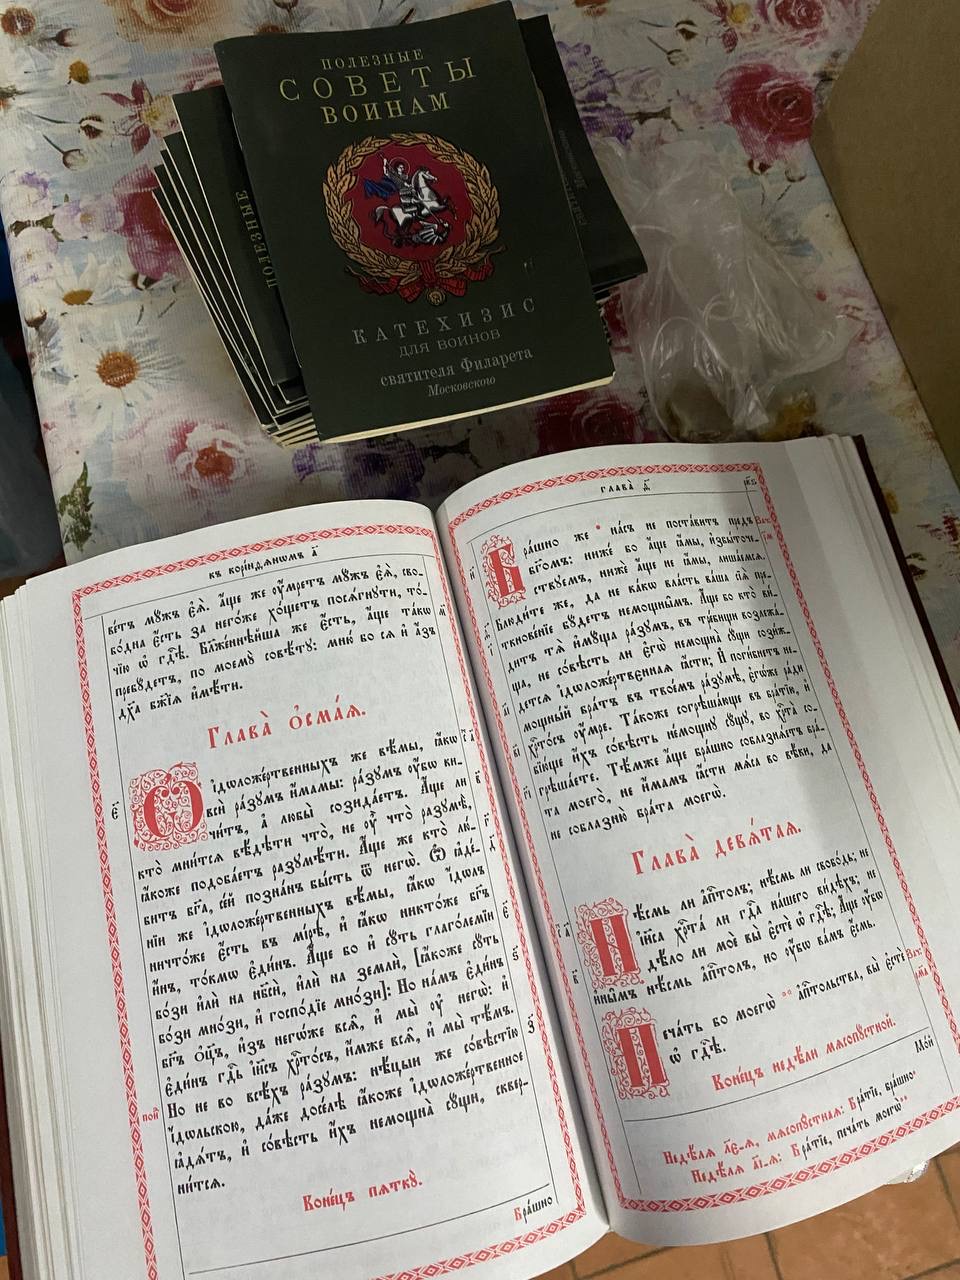 ПОЛЕЗНЫЕ
СОВЕТЫ
ВОИНАМ
КАТЕХИЗИС
ДЛЯ ВОИНОВ
святителя Филарета
Московского
ПОЛЕЗНЫЕ
къ корі́нѳѧнѡмъ а҃
ве́тъ мꙋ́жъ є҆ѧ̀. а҆́ще же ᲂу҆́мретъ мꙋ́жъ є҆ѧ̀, сво-
бо́дна є҆́сть за него́же хо́щетъ посѧгнꙋ́ти, то́-
чїю ѡ҆ гдⷭ҇ѣ. Бл҃же́ннѣйша же є҆́сть, а҆́ще та́кѡ
пребꙋ́детъ, по моемꙋ̀ совѣ́тꙋ: мню́ бо сѧ и҆ а҆́зъ
дх҃а бж҃їѧ и҆мѣ́ти.
Глава̀ ѻ҆сма́ѧ.
Ѽ і҆дѡложе́ртвенныхъ же вѣ́мы, ꙗ҆́кѡ
всѝ ра́зꙋмъ и҆́мамы: ра́зꙋмъ ᲂу҆́бѡ ки-
чи́тъ, а҆ любы̀ созида́етъ. А҆́ще ли
кто̀ мни́тсѧ вѣ́дѣти что̀, не ᲂу҆̀ что̀ разꙋмѣ̀,
ꙗ҆́коже подоба́етъ разꙋмѣ́ти. А҆́ще же кто̀ лю́-
битъ бг҃а, се́й позна́нъ бы́сть ѿ негѡ̀. Ѽ ꙗ҆де́-
нїи же і҆дѡложе́ртвенныхъ вѣ́мы, ꙗ҆́кѡ і҆́дѡлъ
ничто́же є҆́сть въ мі́рѣ, и҆ ꙗ҆́кѡ никто́же бг҃ъ
и҆́нъ, то́кмѡ є҆ди́нъ. А҆́ще бо и҆ сꙋ́ть глаго́лемїи
бо́зи и҆лѝ на нб҃сѝ, и҆лѝ на землѝ, [ꙗ҆́коже сꙋ́ть
бо́зи мно́зи, и҆ госпо́дїе мно́зи]: Но на́мъ є҆ди́нъ
бг҃ъ ѻ҆ц҃ъ, и҆з̾ негѡ́же всѧ̑, и҆ мы̀ ᲂу҆ негѡ̀: и҆
є҆ди́нъ гдⷭ҇ь і҆и҃съ хрⷭ҇то́съ, и҆́мже всѧ̑, и҆ мы̀ тѣ́мъ.
Но не во всѣ́хъ ра́зꙋмъ: нѣ́цыи же со́вѣстїю
і҆́дѡльскою, да́же досе́лѣ ꙗ҆́коже і҆дѡложе́ртвенное
ꙗ҆дѧ́тъ, и҆ со́вѣсть и҆́хъ немощна̀ сꙋ́щи, сквер-
ни́тсѧ.
Коне́цъ пѧткꙋ̀.
Бра́шно
глава̀ д҃
Бра́шно же * на́съ не поста́витъ пред̾
бг҃омъ: ниже́ бо а҆́ще ꙗ҆́мы, и҆збы́точе-
ствꙋемъ, нижѐ а҆́ще не ꙗ҆́мы, лиша́емсѧ.
Блюди́те же, да не ка́кѡ вла́сть ва́ша сїѧ̀ пре-
ткнове́нїе бꙋ́детъ немѡщны̑мъ. А҆́ще бо кто̀ ви́-
дитъ тѧ̀ и҆мꙋ́ща ра́зꙋмъ, въ тре́бищи возлежа́-
ща, не со́вѣсть ли є҆гѡ̀ немощна̀ сꙋ́щи сози́ж-
детсѧ і҆дѡложє́ртвеннаѧ ꙗ҆́сти; И҆ поги́бнетъ не-
мощны́й бра́тъ въ твое́мъ ра́зꙋмѣ, є҆гѡ́же ра́ди
хрⷭ҇то́съ ᲂу҆́мре. Та́коже согрѣша́юще въ бра́тїю, и҆
бїю́ще и҆́хъ со́вѣсть не́мощнꙋ сꙋ́щꙋ, во хрⷭ҇та̀ со-
грѣша́ете. Тѣ́мже а҆́ще бра́шно соблазнѧ́етъ бра́-
та моего̀, не и҆́мамъ ꙗ҆́сти мѧ́са во вѣ́ки, да
не соблазню̀ бра́та моегѡ̀.
Глава̀ девѧ́таѧ.
Нѣ́смь ли а҆пⷭ҇толъ; нѣ́смь ли свобо́дь; не
і҆и҃са хрⷭ҇та̀ ли гдⷭ҇а на́шего ви́дѣхъ; не
дѣ́ло ли моѐ вы̀ є҆стѐ ѡ҆ гдⷭ҇ѣ; А҆́ще ᲂу҆́бѡ
и҆ны̑мъ нѣ́смь а҆пⷭ҇толъ, но ᲂу҆́бѡ ва́мъ є҆́смь.
Печа́ть бо моегѡ̀ ** а҆пⷭ҇тольства, вы̀ є҆стѐ
ѡ҆ гдⷭ҇ѣ.
Коне́цъ недѣ́ли мѧсопꙋ́стной.
Мо́й
Недѣ́лѧ л҃є-ѧ, мѧсопꙋ́стнаѧ: Бра́тїе, бра́шно*
Недѣ́лѧ а҃і-ѧ: Бра́тїе, печа́ть моегѡ̀**